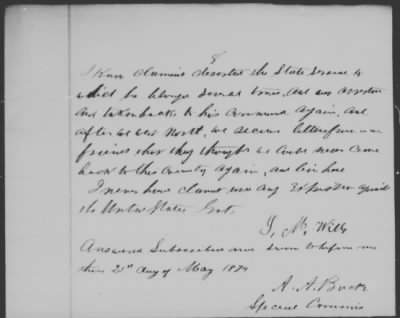 8
I Know claimant deserted the State Service to
which he belongs Several times, and was arrested
and taken back to his command again, and
after we went North, we received letters from our
friends that they thought we could never come
back to this County again, and live here
I never knew claimant use any expression against
the United States Govt,
J. M. Wills
Answered Subscribed and sworn to before me
this 21st day of May 1874
A. A.
Special Commis